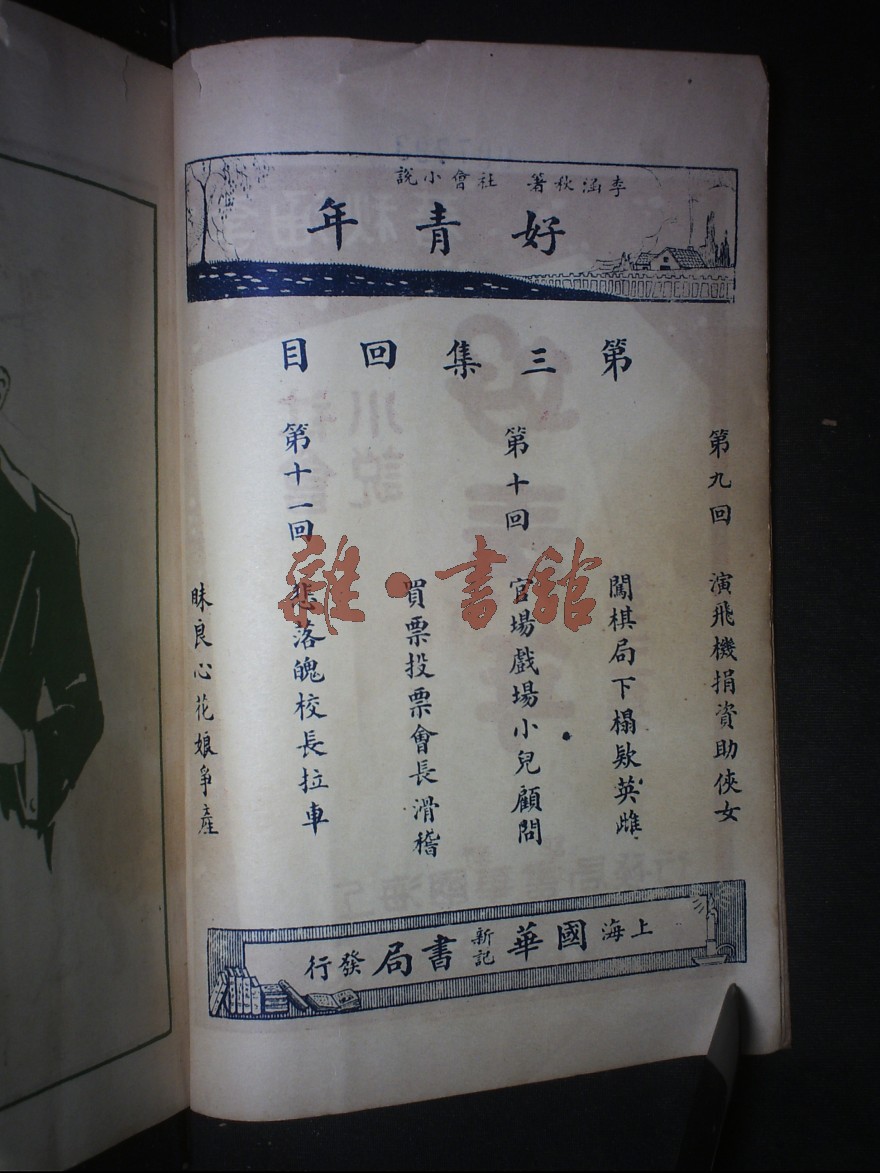 李涵秋著 社會小說
好青年
第三集回目
第九回 演飛機捐資助俠女
闖棋局下榻欵英雌
第十回 官場戲場小兒顧問
買票投票會長滑稽
第十一回 悲落魄校長拉車
昧良心花娘爭產
上海國華新記書局發行
雜·書館